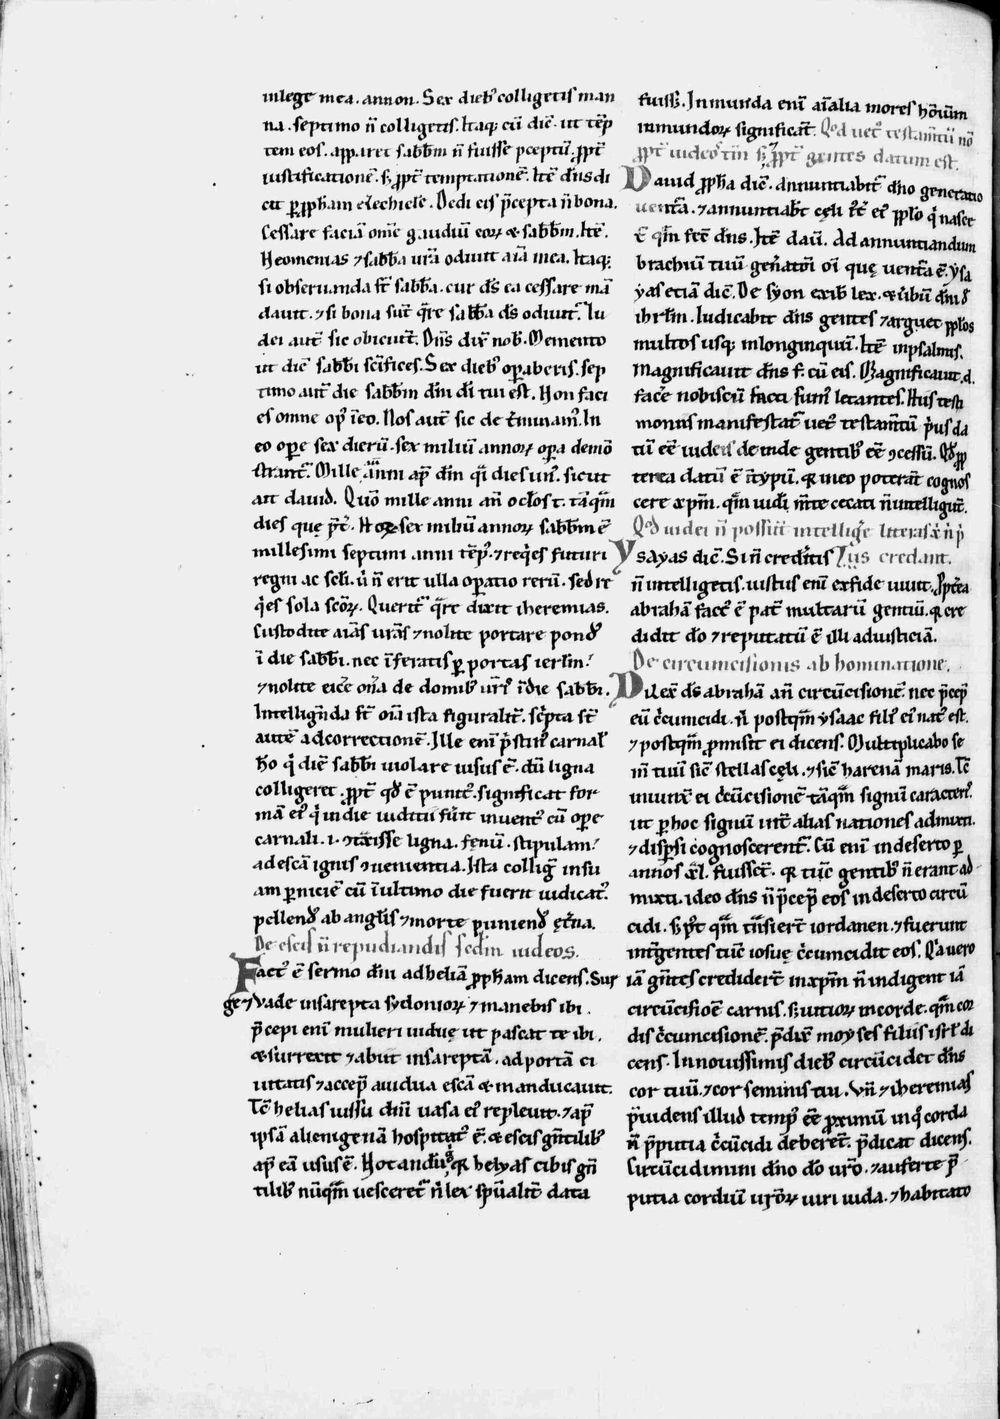 inlege mea . annon . Sex dieb; colligetis man
na . septimo n̄ colligetis. Itaq; cū diē . ut tēp
tem eos . apparet sabb̄m n̄ fuisse pceptū . ꝓpt̄
iustificationē . s; ꝓpt̄ temptationē . Itē dn̄s di
cit ꝑ ꝓph̄am ezechiele . Dedi eis p̄cepta n̄ bona .
Cessare faciā om̄e gaudiū eoꝝ & sabb̄m . Itē .
Neomenias ⁊ sabb̄a ur̄a odiuit aīa mea . Itaq;
si obseruanda st̄ sabb̄a . cur ds̄ ea cessare mā
dauit . ⁊ si bona sūt q̄re sabb̄a ds̄ odiuit . Iu
dei aut̄ sic obiciūt . Dn̄s dix̄ nob̄ . Memento
ut diē sabb̄i sc̄ifices . Sex dieb; oꝑaberis . sep
timo aut̄ die sabb̄m dn̄i dī tui est . Non faci
es omne op; ī eo . Nos aut̄ sic det̄minam; . In
eo oꝑe sex dierū . sex miliū annoꝝ oꝑa demō
strant̄ . Mille anni ap̄ dn̄m q̄i dies un; . sicut
ait dauid . Quō mille anni an̄ oc̄los t . tāq̄m
dies quę p̄t̄ . Hoꝝ sex miliū annoꝝ sabb̄m ē
millesimi septimi anni tēp; . ⁊ reqies futuri
regni ac sc̄li . ū n̄ erit ulla oꝑatio rerū . sed re
qies sola sc̄oꝝ . Querit̄ q̄re dixit iheremias .
Custodite aīas ur̄as ⁊ nolite portare pond;
ī die sabb̄i . nec īferatis ꝑ portas ierl̄m .
⁊ nolite eic̄e on̄a de domib; ur̄i; ī die sabb̄i .
Intellign̄da st̄ oīa ista figuralit̄ . sc̄pta st̄
autē ad correctionē . Ille eni p̄stin; carnal;
hō q̄ diē sabb̄i uiolare uisus ē . dū ligna
colligeret . ꝓpt̄ qd̄ ē punit; . significat for
mā ei; q̄ in die iudicii fūit inuent; cū oꝑe
carnali . i . ꝯtxisse ligna . fenū . stipulam
ad escā ignis ꝯuenientia . Ista collig̅ insu
am ꝑniciē cū ī ultimo die fuerit iudicat; .
pellend; ab angl̄is ⁊ morte puniend; et̄na .
De escis n̄ repudiandis sec̄dm iudeos .
Fact; ē sermo dn̄i ad heliā ꝓph̄am dicens . Sur
ge ⁊ Vade insarepta sydonioꝝ ⁊ manebis ibi .
p̄cepi enī mulieri uiduę ut pascat te ibi .
& surrexit ⁊ abiit insareptā . ad portā ci
uitatis ⁊ accep̄ auidua escā & manducauit .
Itē helias iussu dn̄i uasa ei; repleuit . ⁊ ap̄
ipsā alienigenā hospitat; ē . & escis gn̄tilib;
ap̄ eā usus ē . Notand̄ū qꝛ helyas cibis gn̄
tilib; nūq̄m uesceret̄ n̄ lex spūalit̄ data
fuiss; . Inmunda enī aīalia mores hōiūm
inmundoꝝ significāt . Qod uet; testam̄tū nō
ꝓpt̄ iudeos tm̄ s; ꝓpt̄ gentes datum est .
Dauid ꝓph̄a diē . Annuntiabit̄ dn̄o generatio
uent̄a . ⁊ annuntiab̄t cęli iꝰt̄ ei; pplo q̄ nascet̄
ē q̄m fec̄ dn̄s . Itē dauī . Ad annuntiandum
brachiū tuū gen̄atōi oī quę uent̄a ē . Ysa
yas etiā diē . De syon exib̄ lex . & ūbū dn̄i d
ihrl̄m . Iudicabit dn̄s gentes ⁊ arguet pplos
multos usq; inlonginquū . Itē inpsalmis .
Magnificauit dn̄s f. cū eis . Magnificauit . d.
facē nobiscū facti sum; letantes . Huis testi
moniis manifestat̄ uet; testam̄tū p̄us da
tū eē iudeis deinde gentib; eē ꝯcessū . Qd̄ ꝓp
terea datū ē ī typū . qꝛ ineo poterāt cognos
cere xp̄m . q̄m iudi m̄te cecati n̄ intelligūt .
Qod iudei n̄ possūt intellige literas &̄ n̄ p̄
Ysayas diē . Si n̄ credit̄is ius credant .
n̄ intelligetis . iustus enī exfide uiuit . Ppt̄ea
abrahā fact; ē pat̄ multarū gentiū . qꝛ cre
didit dō ⁊ reputatū ē illi adiusticiā .
De circumcisionis abhominatione .
Dilex̄ ds̄ abrahā an̄ circūcisionē . nec p̄cep̄
eū c̄cumcidi . n̄ postq̄m ysaac fili; ei; nat; est .
⁊ postq̄m ꝓmisit ei dicens . Multiplicabo se
m̄ tuū siē stellas cęli . ⁊ siē harenā maris . Tē
iniunx̄ ei c̄cūcisionē tāq̄m signū caracter; .
ut ꝑ hoc signū int̄ alias nationes admixti .
⁊ disꝑsi cognoscerent̄ . Cū enī indeserto ꝑ
annos xl . fuissent̄ . qꝛ tūc gentib; n̄ erant ad
mixti . ideo dn̄s n̄ p̄cep̄ eos indeserto circū
cidi . s; pt̄ q̄m tn̄sier̄t iordanen . ⁊ fuerunt
int̄ gentes tūc iosuę c̄cumcidit eos . Q̄a uero
iā gn̄tes crediderūt inxp̄m n̄ indigent iā
circūcisioē carnis . s; uitioꝝ incorde . q̄m cor
dis c̄cumcisionē . p̄dix̄ moyses filiis isrl̄ di
cens . Innouissimis dieb; circūcidet dn̄s
cor tuū . ⁊ cor seminis tui . Vn̄ ⁊ iheremias
p̄uidens illud temp; eē ꝓximū inq̄ corda
n̄ p̄putia c̄cūcidi deberent̄ . p̄dicat dicens .
Circūcidimini dn̄o dō ur̄o . ⁊ auferte p̄
putia cordiū ur̄oꝝ uiri iuda . ⁊ habitato